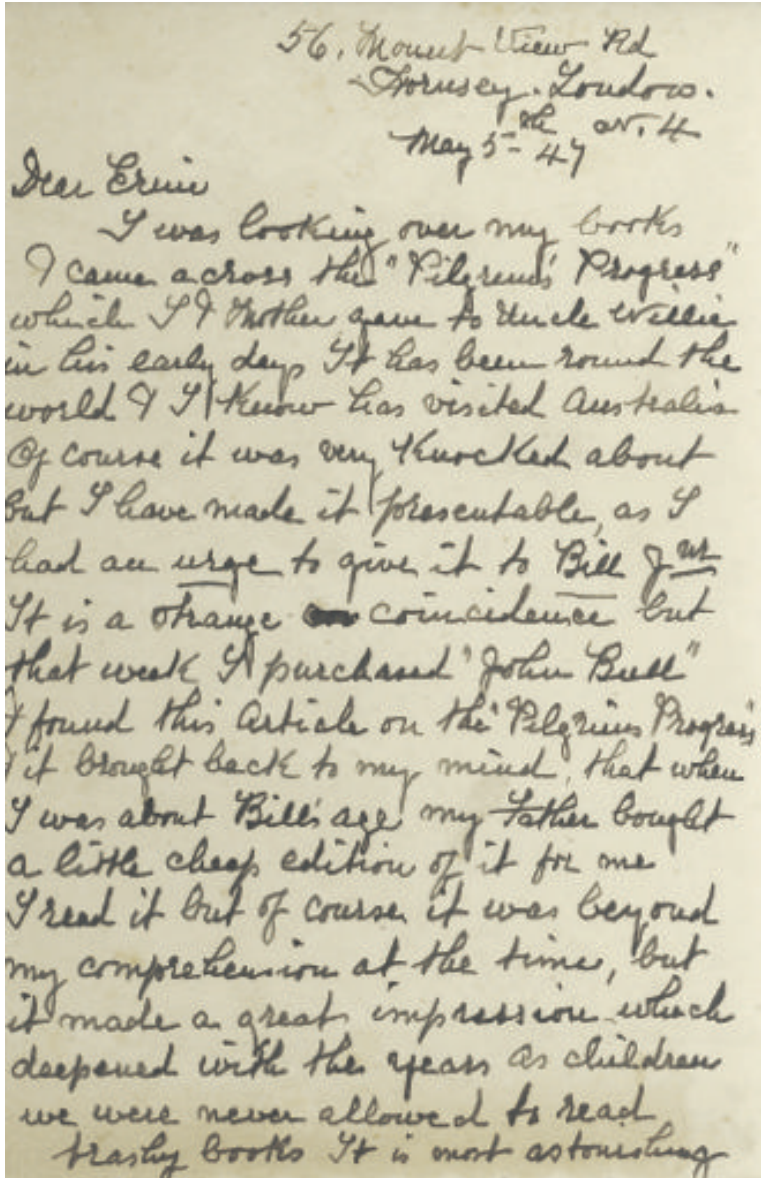 56. Mount View Rd
Hornsey. London.
N. 4
May 5th 47
Dear Ernie
I was looking over my books
& came across the "Pilgrim's Progress"
which I & Mother gave to Uncle Willie
in his early days It has been round the
world & I know has visited Australia
Of course it was very knocked about
but I have made it presentable, as I
had an urge to give it to Bill Jnr
It is a strange coincidence but
that week I purchased "John Bull"
& found this article on the Pilgrims Progress
& it brought back to my mind, that when
I was about Bill's age my Father bought
a little cheap edition of it for me
I read it but of course it was beyond
my comprehension at the time, but
it made a great impression which
deepened with the years as children
we were never allowed to read
trashy books It is most astonishing